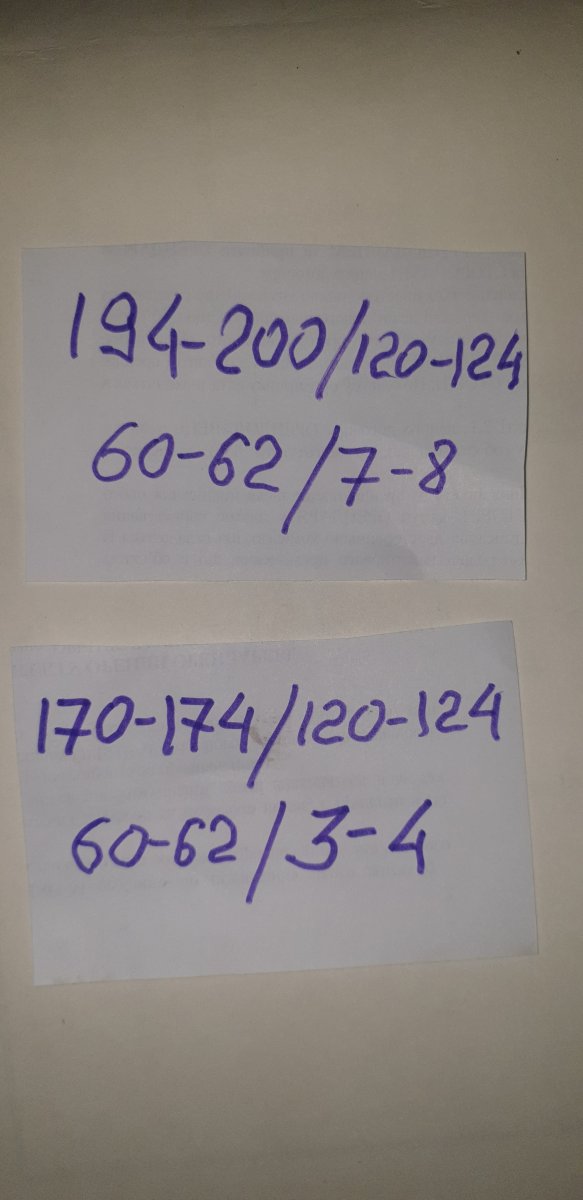 194-200/120-124
60-62/7-8
170-174/120-124
60-62/3-4